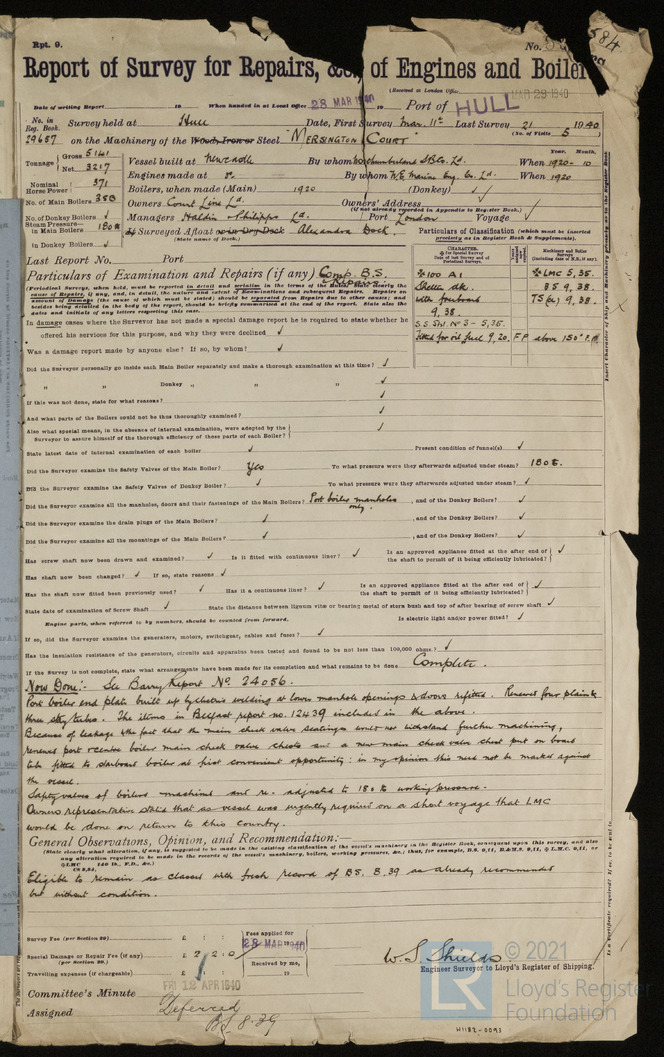 Rpt. 9.
No.
584
Report of Survey for Repairs, &c., of Engines and Boilers
(Received at London Office
MAR 29 1940
Date of writing Report 19 When handed in at Local Office 28 MAR 1940 19 Port of HULL
No. in Reg. Book. Survey held at Hull Date, First Survey Mar. 11th Last Survey 21 1940
(No. of Visits 5 )
29657 on the Machinery of the Wood, Iron or Steel "MERSINGTON COURT"
Tonnage Gross 5141 Net 3217
Vessel built at Newcastle By whom Northumberland SB Co. Ld. When 1920-10
Year. Month.
Engines made at Do By whom N.E. Marine Eng. Co. Ld. When 1920
Nominal Horse Power 371
Boilers, when made (Main) 1920 (Donkey) ✓
No. of Main Boilers 3SB
Owners Court Line Ld. Owners' Address
(if not already recorded in Appendix to Register Book.)
No. of Donkey Boilers ✓
Managers Haldin & Philipps Ld. Port London Voyage ✓
Steam Pressure in Main Boilers 180lb
in Donkey Boilers ✓
If Surveyed Afloat or in Dry Dock Alexandra Dock.
(State name of Dock.)
Particulars of Classification (which must be inserted precisely as in Register Book & Supplements).
Last Report No. Port
Particulars of Examination and Repairs (if any) Comp. B.S. & Repairs
CHARACTER.
Machinery and Boiler Surveys
✠100 A1
Shelter dk.
with freeboard
9,38.
S.S. Shl. No 3 - 5,35.
Fitted for oil fuel 9,20. F P above 150° F.
✠ LMC 5,35.
BS 9,38.
TS(CL) 9,38.
In damage cases where the Surveyor has not made a special damage report he is required to state whether he
offered his services for this purpose, and why they were declined ✓
Was a damage report made by anyone else? If so, by whom? ✓
Did the Surveyor personally go inside each Main Boiler separately and make a thorough examination at this time? ✓
" " Donkey " " " ✓
If this was not done, state for what reasons? ✓
And what parts of the Boilers could not be thus thoroughly examined? ✓
Also what special means, in the absence of internal examination, were adopted by the
Surveyor to assure himself of the thorough efficiency of those parts of each Boiler? ✓
State latest date of internal examination of each boiler ✓ Present condition of funnel(s) ✓
Did the Surveyor examine the Safety Valves of the Main Boiler? Yes To what pressure were they afterwards adjusted under steam? 180lb.
Did the Surveyor examine the Safety Valves of Donkey Boiler? ✓ To what pressure were they afterwards adjusted under steam? ✓
Did the Surveyor examine all the manholes, doors and their fastenings of the Main Boilers? Port boiler manholes only. , and of the Donkey Boilers? ✓
Did the Surveyor examine the drain plugs of the Main Boilers? ✓ , and of the Donkey Boilers? ✓
Did the Surveyor examine all the mountings of the Main Boilers? ✓ , and of the Donkey Boilers? ✓
Has screw shaft now been drawn and examined? ✓ Is it fitted with continuous liner? ✓ Is an approved appliance fitted at the after end of the shaft to permit of it being efficiently lubricated? ✓
Has shaft now been changed? ✓ If so, state reasons ✓
Has the shaft now fitted been previously used? ✓ Has it a continuous liner? ✓ Is an approved appliance fitted at the after end of the shaft to permit of it being efficiently lubricated? ✓
State date of examination of Screw Shaft ✓ State the distance between lignum vitæ or bearing metal of stern bush and top of after bearing of screw shaft ✓
Engine parts, when referred to by numbers, should be counted from forward. Is electric light and/or power fitted? ✓
If so, did the Surveyor examine the generators, motors, switchgear, cables and fuses? ✓
Has the insulation resistance of the generators, circuits and apparatus been tested and found to be not less than 100,000 ohms? ✓
If the Survey is not complete, state what arrangements have been made for its completion and what remains to be done Complete.
Now Done:- See Barry Report No. 24056.
Port boiler end plate built up by electric welding at lower manhole openings & doors refitted. Renewed four plain &
three stay tubes. The items in Belfast report no. 12439 included in the above.
Because of leakage & the fact that the main check valve seatings would not withstand further machining,
renewed port & centre boiler main check valve chests and a new main check valve chest put on board
to be fitted to starboard boiler at first convenient opportunity: in my opinion this need not be marked against
the vessel.
Safety valves of boilers machined and re-adjusted to 180lb working pressure.
Owners representative stated that as vessel was urgently required on a short voyage that LMC
would be done on return to this country.
General Observations, Opinion, and Recommendation:—
(State clearly what alteration, if any, is suggested to be made in the existing classification of the vessel's machinery in the Register Book, consequent upon this survey, and also
any alteration required to be made in the records of the vessel's machinery, boilers, working pressures, &c.; thus, for example, B.S. 9,11, B.&M.S. 9,11, ✠ L.M.C. 9,11, or
✠LMC 140 lb., F.D., &c.)
CS 9,34,
Eligible to remain as classed with fresh record of BS. 8,39 as already recommended
but without condition.
Survey Fee (per Section 29) £ : :
Special Damage or Repair Fee (if any) (per Section 29.) £ 2 : 2 : 0
Travelling expenses (if chargeable) £ : :
Fees applied for
28 MAR 1940
Received by me,
19
W. S. Shields
Engineer Surveyor to Lloyd's Register of Shipping.
Committee's Minute FRI 12 APR 1940
Assigned Deferred
BS 8.39
© 2021
Lloyd's Register
Foundation
H1182-0093